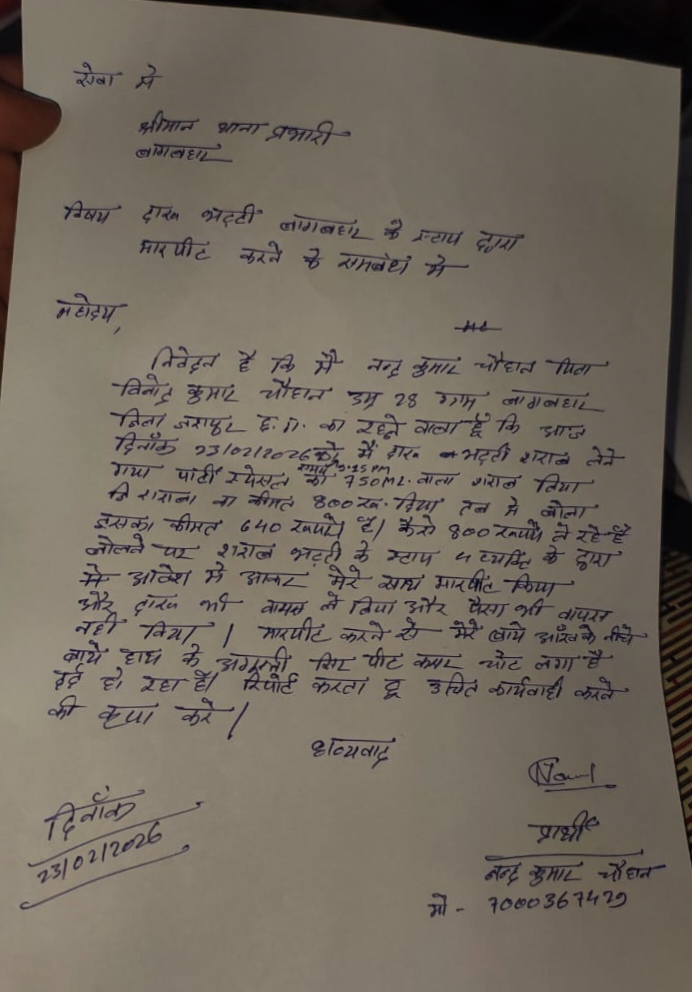 सेवा मे
श्रीमान थाना प्रभारी
बागबहार
विषय दारू भट्टी बागबहार के स्टाप द्वारा
मारपीट करने के समबंध मे
महोदय,
निवेदन है कि मै नन्द्र कुमार चौहान पिता
विनोद्र कुमार चौहान उम्र 28 ग्राम बागबहार
जिला जशपुर छ.ग. का रहने वाला हूँ कि आज
दिनाँक 23/02/2026 को मैं दारू भट्टी शराब लेने
समय 3:25 PM
गया पार्टी स्पेसल का 750ML. वाला शराब लिया
शराब का कीमत 800 रू. लिया तब मे बोला
इसका कीमत 640 रूपये है। कैसे 800 रूपये ले रहे है
बोलने पर शराब भट्टी के स्टाप 4 व्यक्ति के द्वारा
मे आवेश मे आकर मेरे साथ मारपीट किया
और दारू भी वापस ले लिया और पैसा भी वापस
नही किया। मारपीट करने से मेरे बाये आँख के नीचे
बाये हाथ के सिर पीट कमर चोट लगा है
दर्द हो रहा है। रिपोर्ट करता हू उचित कार्यवाही करने
की कृपा करे।
धन्यवाद
प्रार्थी
दिनाँक
23/02/2026
नन्द्र कुमार चौहान
मो - 7000367429